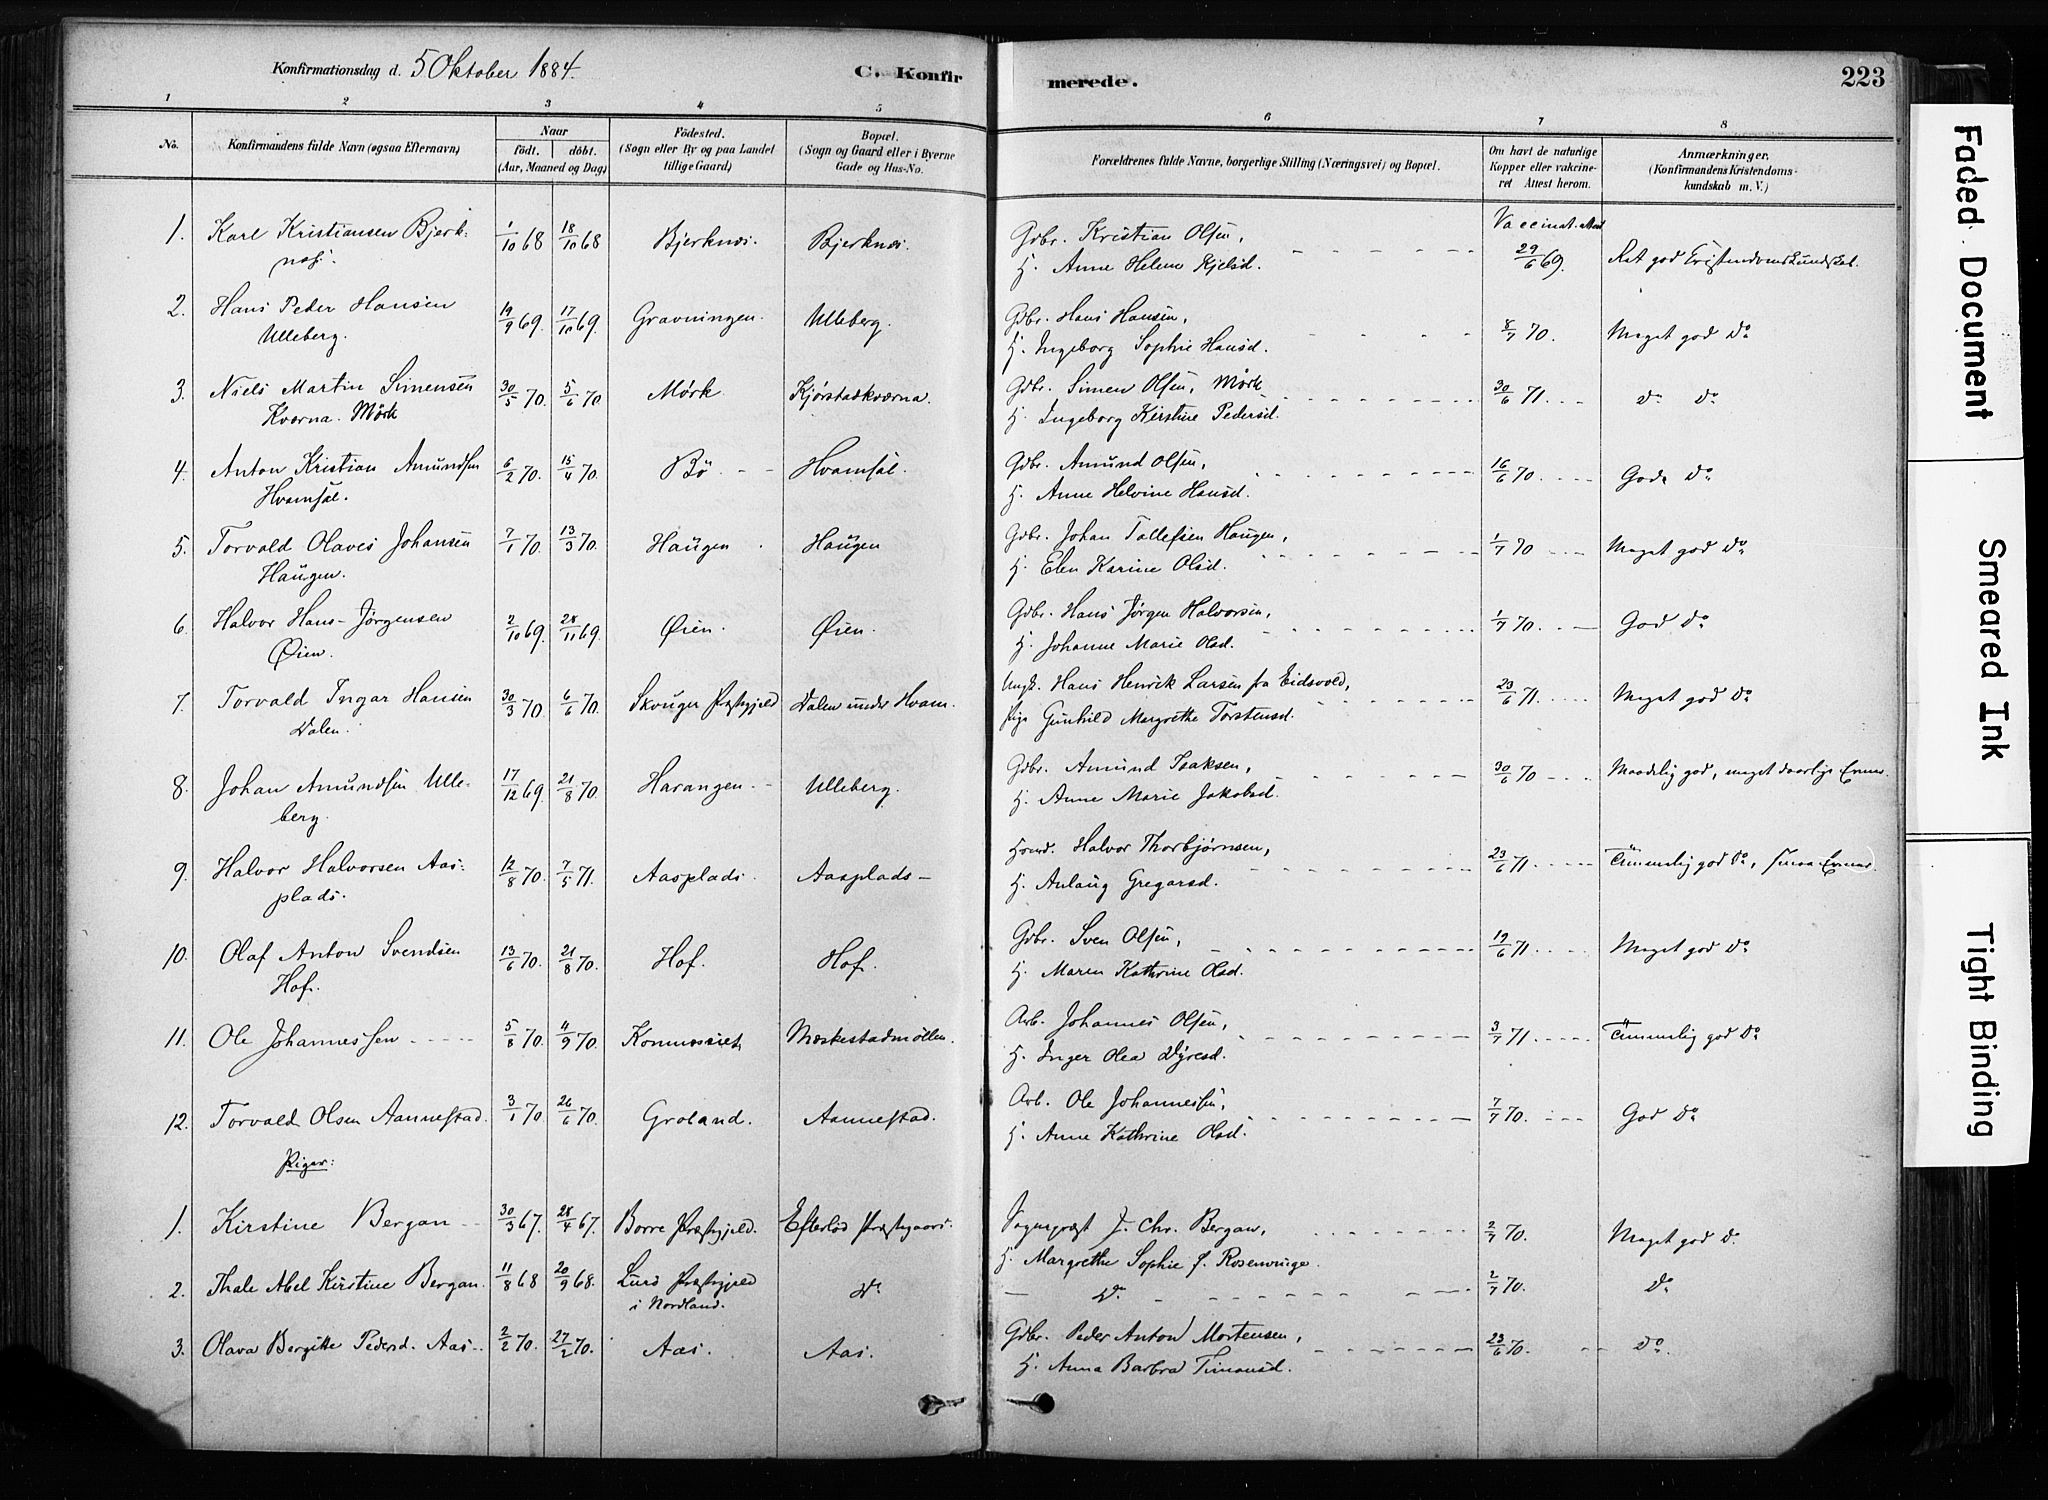 Konfirmationsdag d. 5 Oktober 1884.
C. Konfirmerede.
223
1 2 3 4 5 6 7 8
No. Konfirmandens fulde Navn (ogsaa Efternavn) Naar födt. döbt. (Aar, Maaned og Dag) Födested. (Sogn eller By og paa Landet tillige Gaard) Bopæl. (Sogn og Gaard eller i Byerne Gade og Hus-No. Forældrenes fulde Navne, borgerlige Stilling (Næringsvei) og Bopæl. Om havt de naturlige Kopper eller vakcineret Attest herom. Anmærkninger. (Konfirmandens Kristendomskundskab m. V.)
1. Karl Kristiansen Bjerk- 1/10 68 18/10 68 Bjerknæs. Bjerknæs. Gdbr. Kristian Olsen, Vaccinat. 29/6 69. Ret god Cristendomskundskab.
næs. H. Anne Helene Kjelsd.
2. Hans Peder Hansen 19/9 69. 17/10 69. Gravningen. Ulleberg. Gdbr. Hans Hansen, 8/7 70. Meget god Do
Ulleberg. H. Ingeborg Sophie Hansd.
3. Niels Martin Simensen 30/5 70. 5/6 70 Mørk Kjørstadkværna. Gdbr. Simen Olsen, Mørk 30/6 71. Do Do
Kværna. Mørk H. Ingeborg Kirstine Pedersd.
4. Anton Kristian Amundsen 6/2 70. 15/4 70. Bö Hvamsal. Gdbr. Amund Olsen, 16/6 70. God Do
Hvamsal. H. Anne Helvine Hansd.
5. Torvald Olaves Johansen 7/1 70. 13/3 70. Haugen Haugen Gdbr. Johan Tollefsen Haugen, 1/7 70 Meget god Do
Haugen. H. Elen Karine Olsd.
6. Halvor Hans-Jörgensen 2/10 69. 28/11 69. Øien. Øien. Gdbr. Hans Jørgen Halvorsen, 1/7 70. God Do
Øien. H. Johanne Marie Olsd.
7. Torvald Ingar Hansen 30/3 70. 6/6 70. Skouger Præstgjeld Dalen under Hvam. Ungk. Hans Henrik Larsen fra Eidsvold, 23/6 71. Meget god Do
Dalen. Pige Gunhild Margrethe Torstensd.
8. Johan Amundsen Ulle- 17/12 69. 21/8 70. Harangen. Ulleberg. Gdbr. Amund Isaksen, 30/6 70 Maadelig god, meget daarlige Evner.
berg. H. Anne Marie Jakobsd.
9. Halvor Halvorsen Aas- 12/8 70. 7/5 71. Aasplads. Aasplads Halvor Thorbjørnsen, 23/6 71. Temmelig god Do, smaa Evner.
plads. H. Anlaug Gregarsd.
10. Olaf Anton Svendsen 13/6 70. 21/8 70. Hof. Hof. Gdbr. Sven Olsen, 19/6 71. Meget god Do
Hof. H. Maren Kathrine Olsd.
11. Ole Johannessen 5/8 70. 4/9 70. Kommersiet Mækestadmöllen. Arb. Johannes Olsen, 3/7 71. Temmelig god Do
H. Inger Olea Dyresd.
12. Torvald Olsen Aannestad. 3/1 70 26/6 70. Groland. Aannestad. Arb. Ole Johannessen, 7/7 70. God Do
H. Anne Kathrine Olsd.
Piger:
1. Kirstine Bergan 30/3 67. 28/4 67. Borre Præstgjeld. Efteløt Præstegaard. Sogneprest J. Chr. Bergan, 2/7 70. Meget god Do
H. Margrethe Sophie f. Rosenvinge
2. Thale Abel Kirstine Bergan. 11/8 68 20/9 68. Lurø Præstgjeld Do Do 2/7 70. Do
i Nordland.
3. Olava Bergitte Pedersd. Aas 2/2 70. 27/2 70. Aas. Aas. Gdbr. Peder Anton Mortensen, 23/6 70. Do.
H. Anna Barbra Timansd.
Faded Document
Smeared Ink
Tight Binding